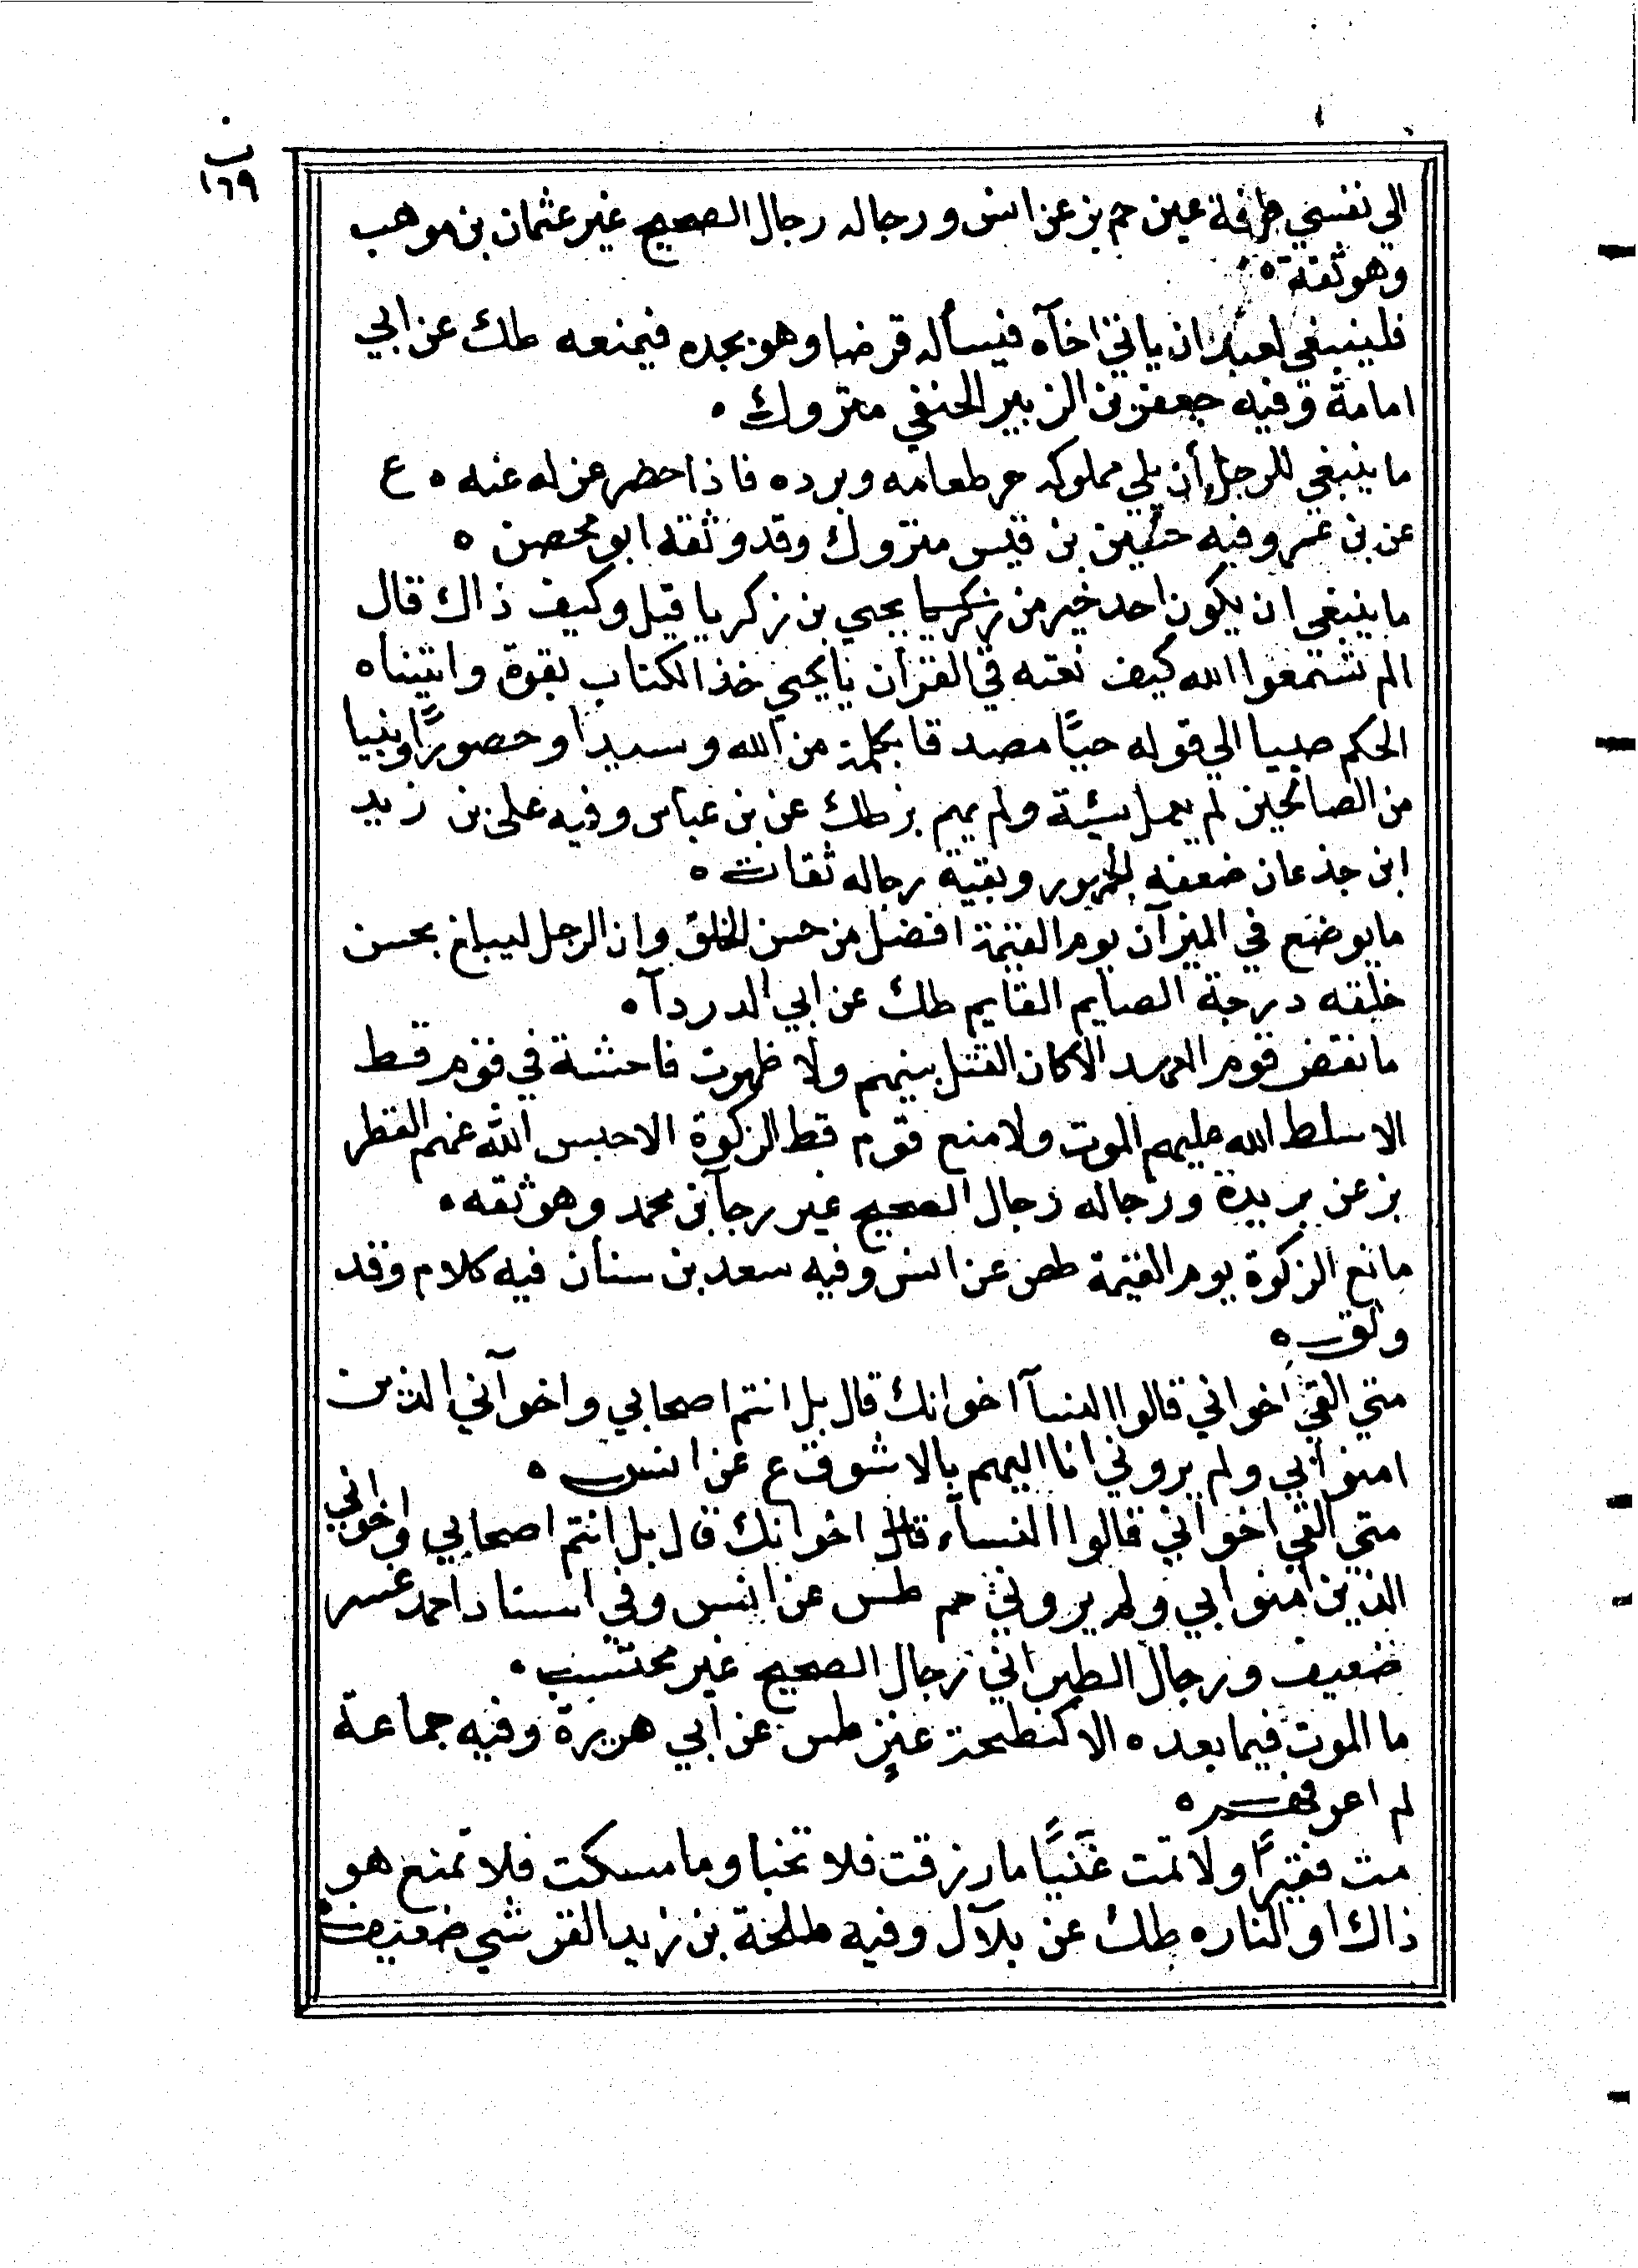 ب
١٦٩
الي نفسي طرفة عين حم بز عن انس ورجاله رجال الصحيح غير عثمان بن موهب
وهو ثقة ه
فلينبغي لعبد ان ياتي اخآه فيسأله قرضا وهو يجده فيمنعه طك عن ابي
امامة وفيه جعفر بن الزبير الحنفي متروك ه
ما ينبغي للرجل أن يلي مملوكه حر طعامه وبرده فاذا حضر عزله عنه ه ع
عن بن عمر وفيه حسين بن قيس متروك وقد وثقه ابو محصن ه
ما ينبغي ان يكون احد خير من زكريا يحيي بن زكريا قيل وكيف ذاك قال
الم تسمعوا الله كيف نعته في القرآن يا يحيي خذ الكتاب بقوة واتيناه
الحكم صبيا الي قوله حيًّا مصدقا بكلمة من الله وسيدا وحصورًا ونبيا
من الصالحين لم يعمل سيئة ولم يهم بز طك عن بن عباس وفيه علي بن زيد
ابن جذعان ضعفه الجمهور وبقية رجاله ثقات ه
ما يوضع في الميزآن يوم القيمة افضل من حسن الخلق وان الرجل ليبلغ بحسن
خلقه درجة الصايم القايم طك عن ابي الدردآ ه
ما نقض قوم العهد الا كان القتل بينهم ولا ظهرت فاحشة في قوم قط
الا سلط الله عليهم الموت ولا منع قوم قط الزكوة الا حبس الله عنهم القطر
بز عن بريدة ورجاله رجال الصحيح غير رجآ بن محمد وهو ثقه ه
مانع الزكوة يوم القيمة طص عن انس وفيه سعد بن سنان فيه كلام وقد
وثق ه
متي القي اخواني قالوا السنآ اخوانك قال بل انتم اصحابي واخوآني الذين
امنوا بي ولم يروني انا اليهم بالاشوق ع عن انس ه
متي القي اخواني قالوا السنآء قال اخوانك قال بل انتم اصحابي واخواني
الذين امنوا بي ولم يروني حم طس عن انس وفي اسناد احمد عسر
ضعيف ورجال الطبراني رجال الصحيح غير محتسب ه
ما الموت فيما بعده الا كنطحة عنز طس عن ابي هريرة وفيه جماعة
لم اعرفهم ه
مت فقيرًا ولا تمت غنيًّا ما رزقت فلا تخبا وما مسكت فلا تمنع هو
ذاك او النار ه طك عن بلآل وفيه طلحة بن زيد القرشي ضعيف